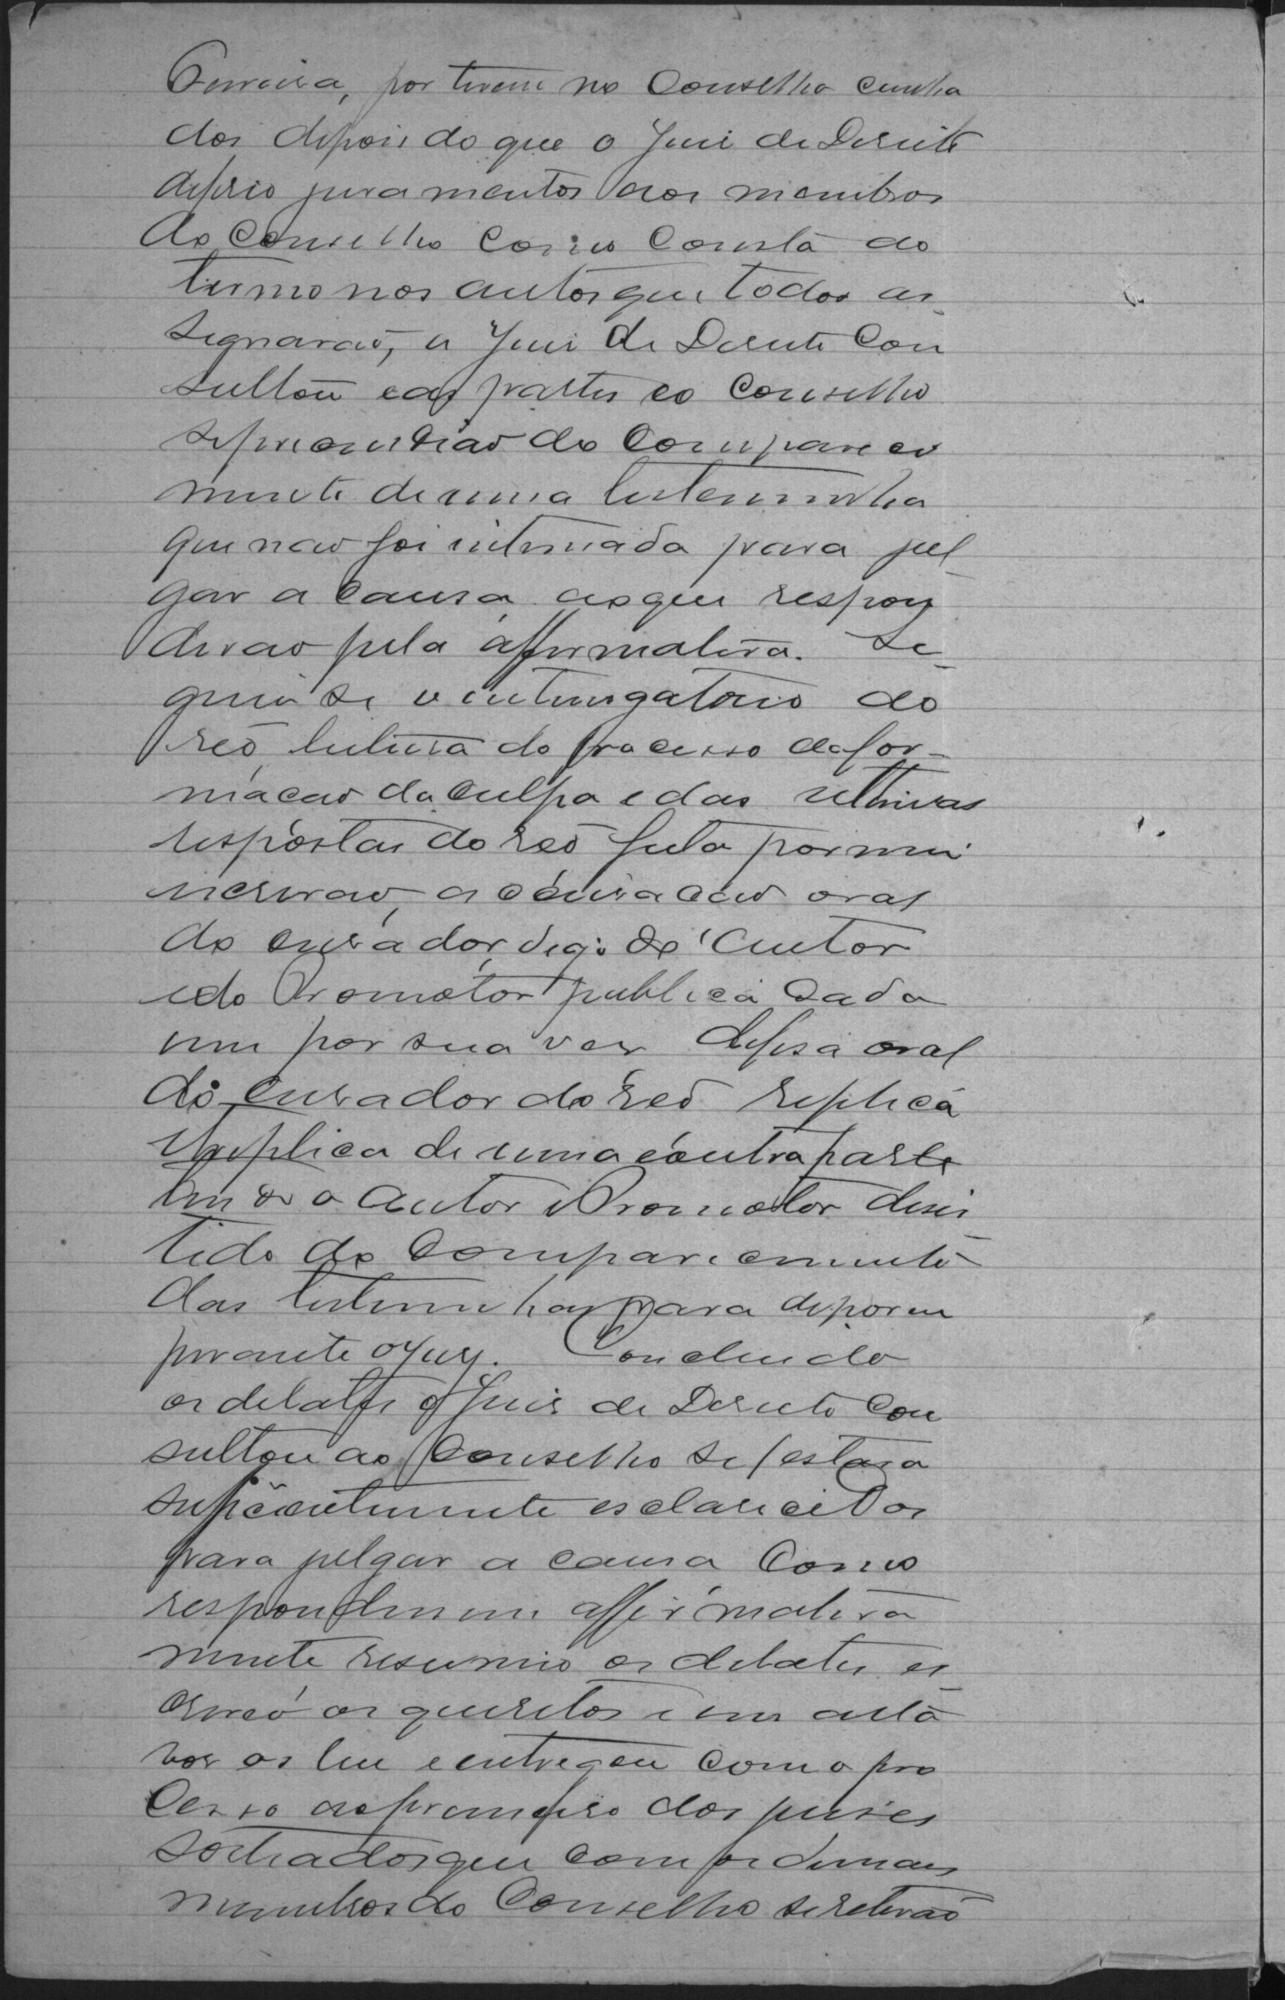 Ferreira, por terem no Conselho cunha
dos depois do que o Juiz de Direito
deferio juramentos aos membros
do Conselho como consta do
termo nos autos que todos as-
signarão, o Juiz de Direito con
sultou as partes e o Conselho
se prescindião do compareci
mento de uma testemunha
que nao foi intimada para jul-
gar a causa ao que respon
derao pela affirmativa. Se-
guiu se o interrogatorio do
reo, leitura do processo da for-
macao da culpa e das ultimas
respostas do reo feita por mim
escrivao, accusacao oral
do curador, digo do autor
e do Promotor publico cada
um por sua vez defesa oral
do curador do reo replica
e treplica de uma e outra parte
tendo o autor e Promotor desis
tido do comparecimento
das testemunhas para deporem
perante o jury. Concluido
os debates o Juiz de Direito con
sultou ao Conselho se estava
suficientemente esclarecidos
para julgar a causa como
respondessem affirmativa
mente resumio os debates es-
creveo os quesitos e em alta
voz os leu e entregou com o pro
cesso ao primeiro dos juizes
sorteados que com os demais
membros do Conselho se retirão